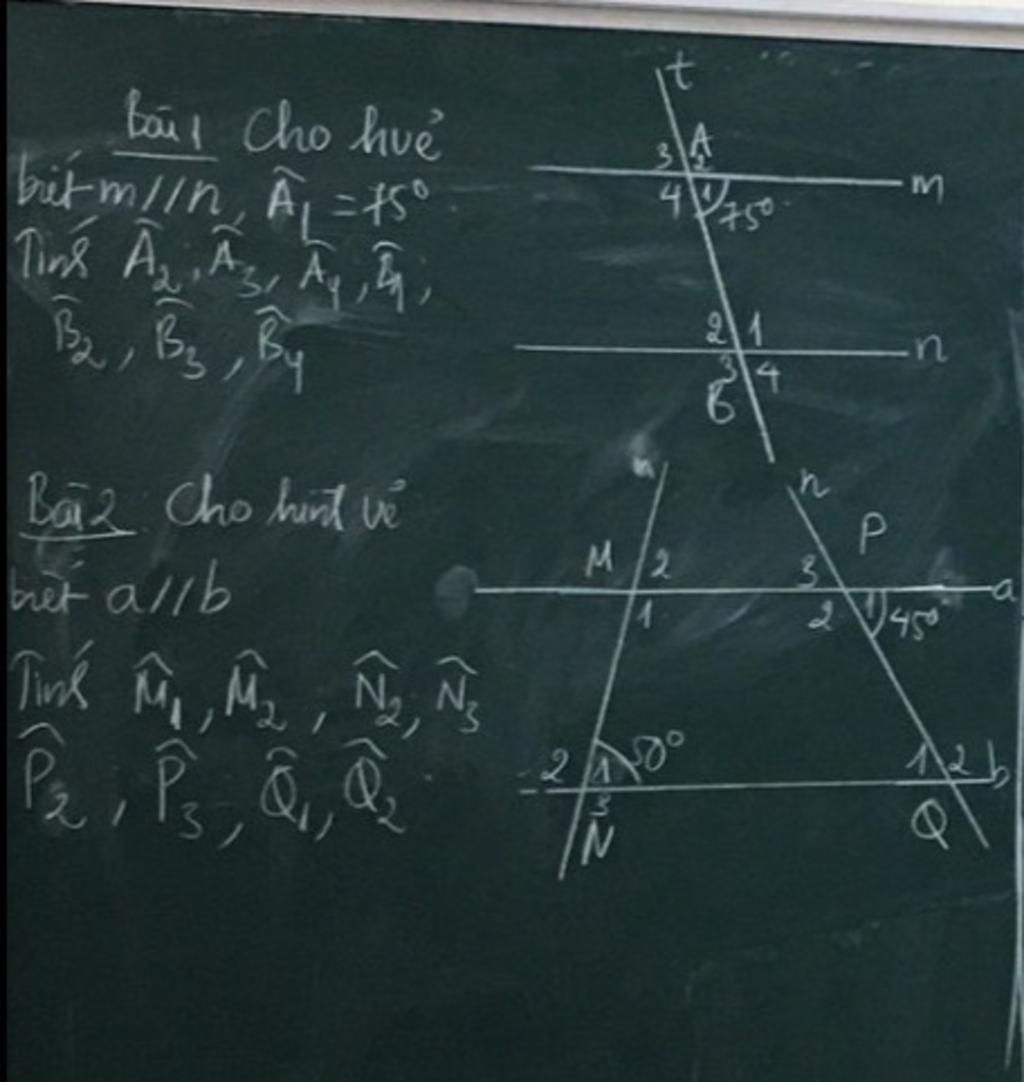 Bài 1 Cho hvẽ
biết m//n, Â₁ = 75°
Tính Â₂, Â₃, Â₄, B̂₁,
B̂₂, B̂₃, B̂₄
t
3 A 2
m
4 1 75°
2 1
n
3 4
B
Bài 2 Cho hình vẽ
biết a//b
Tính M̂₁, M̂₂, N̂₂, N̂₃
P̂₂, P̂₃, Q̂₁, Q̂₂
m
n
M 2
3 P
a
1
2 1 45°
2 1 50°
1 2 b
3
N
Q